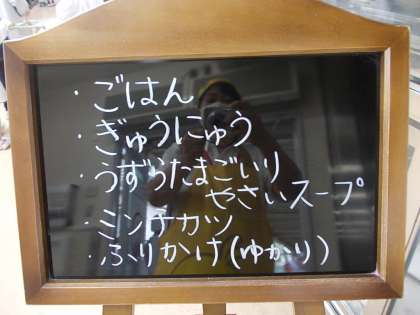 ・ごはん
・ぎゅうにゅう
・うずらたまごいり
やさいスープ
・ミンチカツ
・ふりかけ(ゆかり)